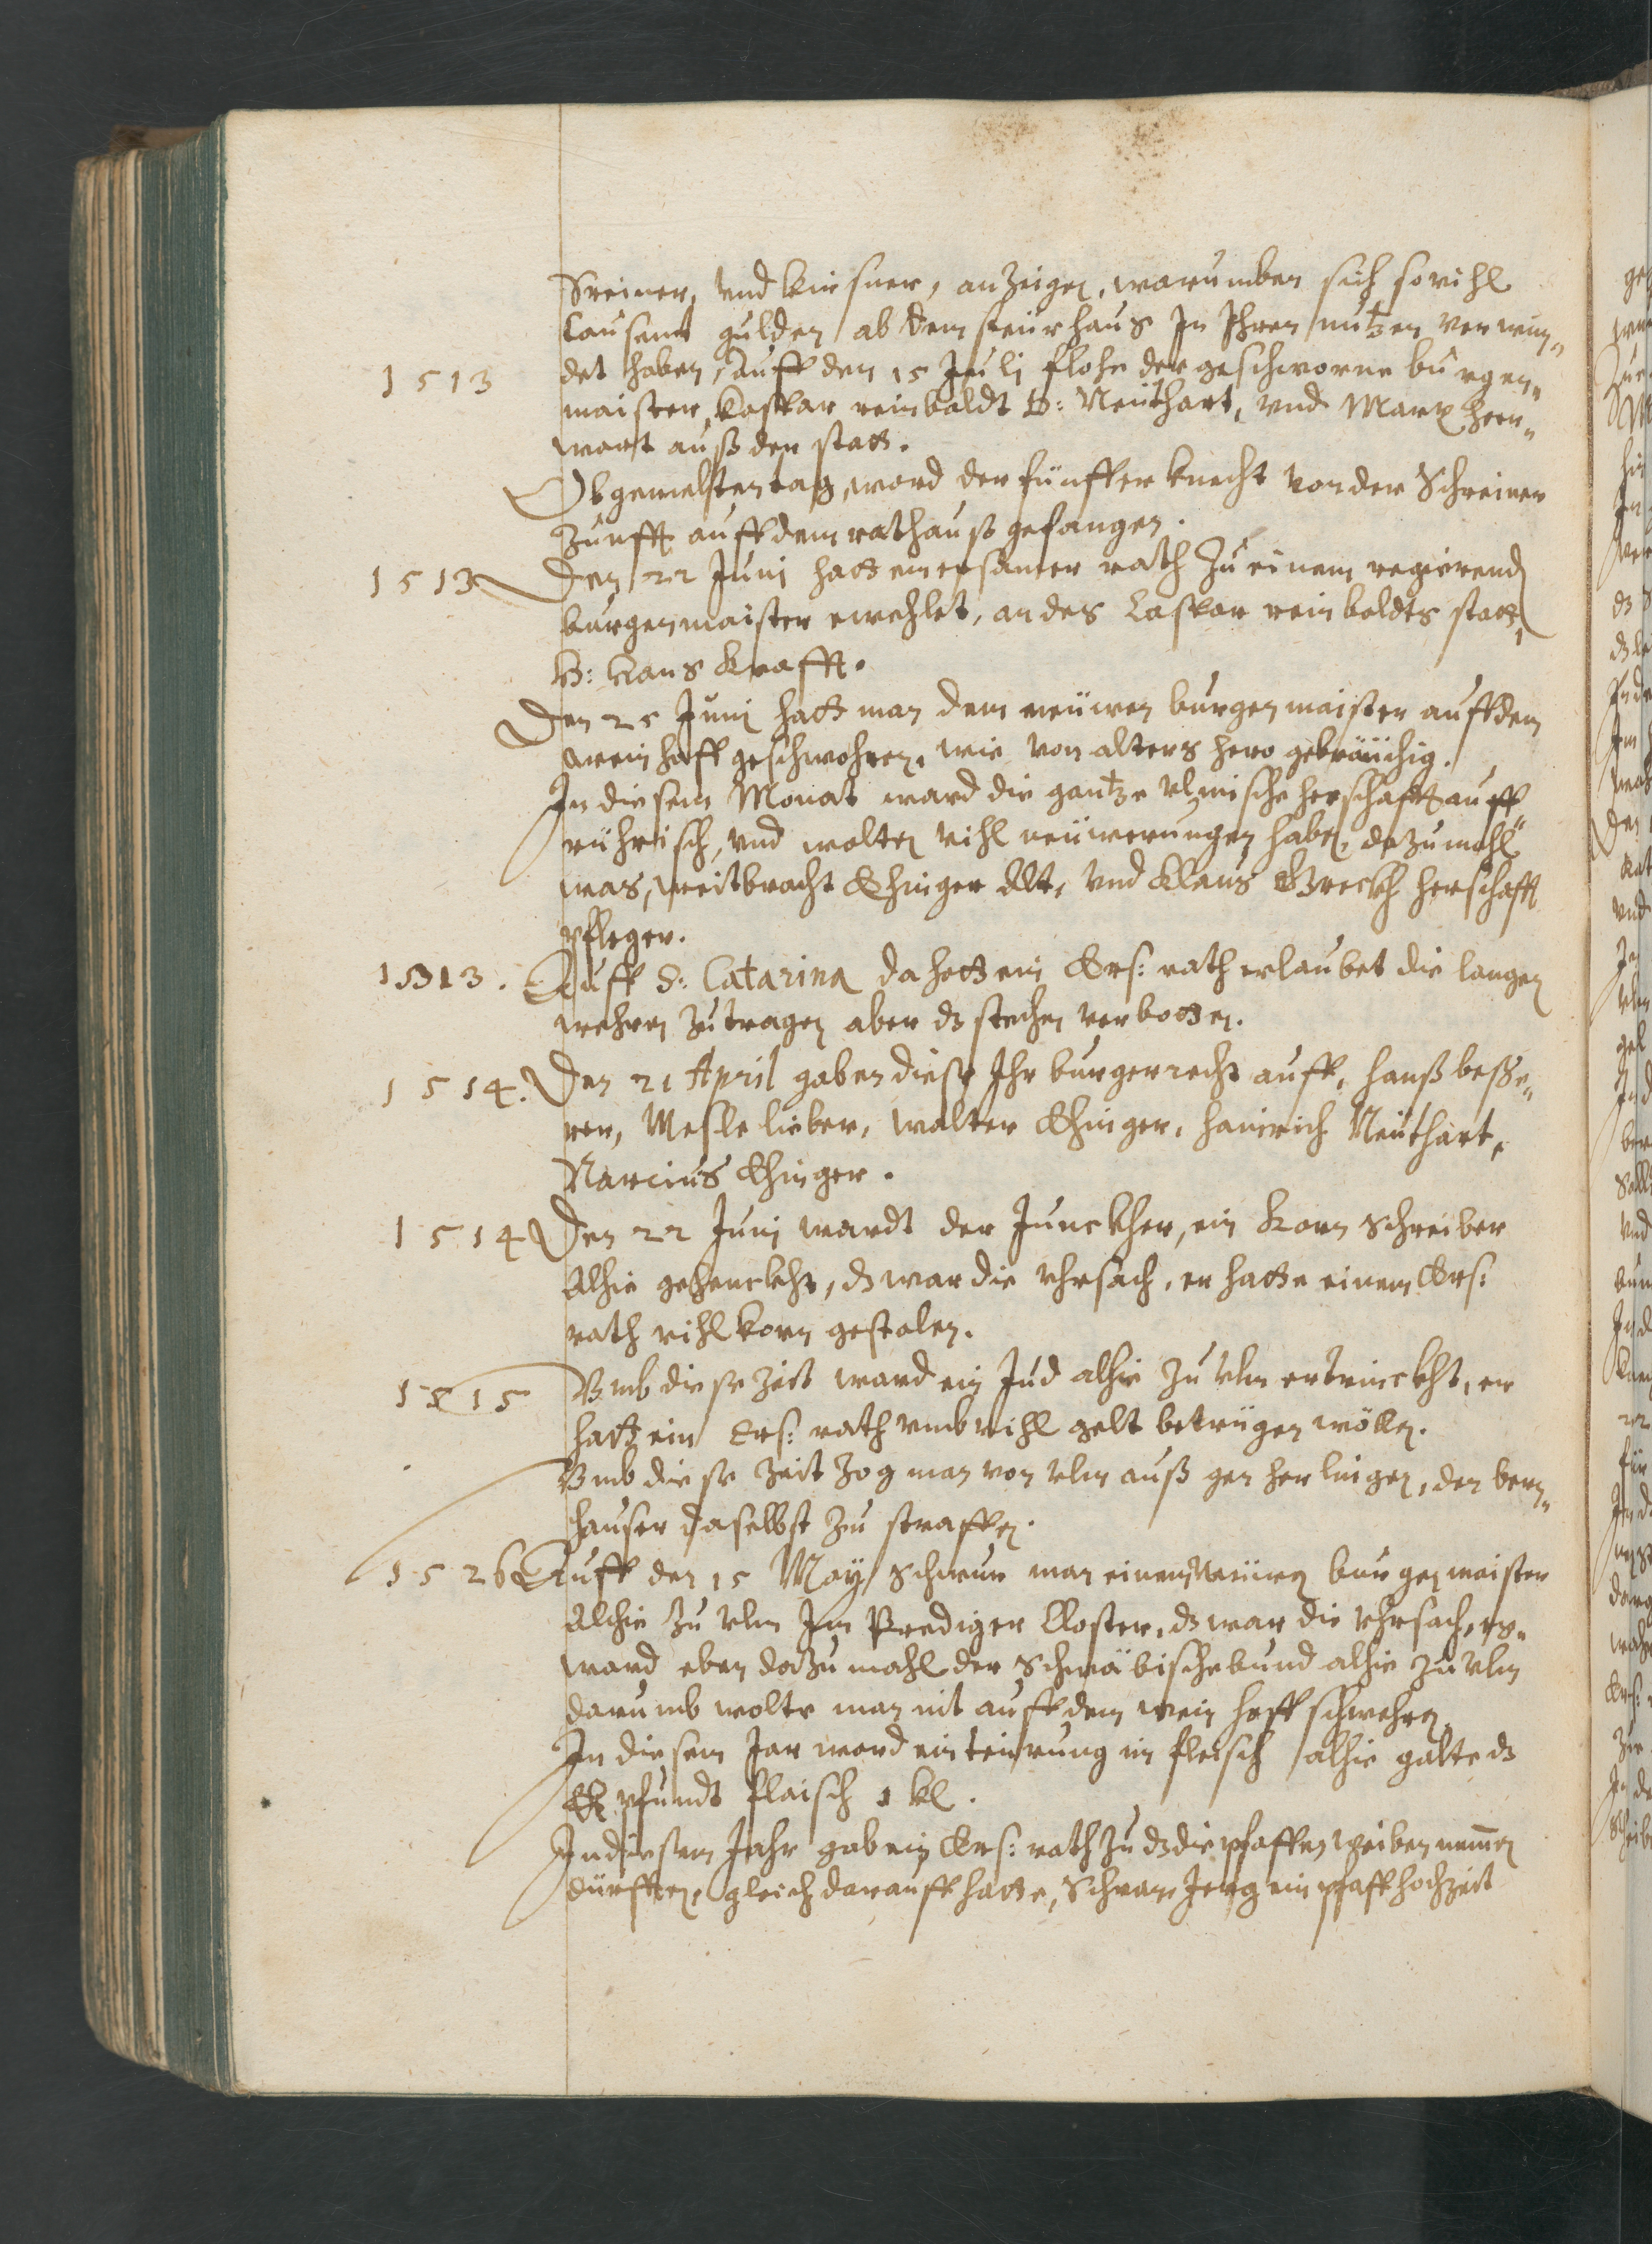 Sreiner, vnd Kirsner, anzeigen, warumben sich sovihl
tausent gulden ab dem steürhaus In Ihren nutzen verwen„
1513 det haben, Auff den 15 Juli flohe der geschworne burgen„
maister, Caspar reinboldt B: Neithart, vnd Marx herr„
wart auß der statt.
Obgemelten tag, ward der fünffer knecht von der Schreiner
zunfft auff dem rathauß gefangen.
1513 Den 22 Juni hatt ein ersamer rath Zu einem regierend
burgenmaister erwehlet, an des Caspar reinboldts statt,
H: Hans Krafft.
Den 25 Juni hatt man dem neüwen burgenmaister auff dem
weinhoff geschwohren, wie von alters hero gebräüchig.
In diesem Monat ward die gantze vlmische herschafft auff„
rührisch, vnd wolten vihl neüwerungen haben, dazumahl
was, weitbracht Ehinger Alt, vnd Klaus Greckh herschafft
pfleger.
1513. Auff S: Catarina da hatt ein Ers: rath erlaubet die langen
wehren zu tragen aber ds stechen verbotten.
1514. Den 21 April gaben diese Ihr burgerrecht auff, hanß beße„
rer, Mesle lieber, walter Ehinger, hainrich Neithart,
Narcius Ehinger.
1514 Den 22 Juni wardt der Junckher, ein Korn schreiber
Alhie gehenckht, ds war die vhrsach, er hatte einem Ers:
rath vihl korn gestolen.
1515 Vmb diese zeit ward ein Jud alhie zu vlm ertrinckht, er
hatt ein Ers: rath vmb vihl gelt betrügen wöllen.
Vmb diese zeit zog man von vlm auß gen herlingen, den bern„
hauser daselbst zu straffen.
1526 Auff den 15 May schwur man einem Neüwen burgenmaister
Alhie zu vlm Im Prediger Closter, ds war die vhrsach, es„
ward eben dazumahl der Schwäbische bund alhie zu vlm
darumb wolte man nit auff dem wein hoff schwehren.
In diesem Jar ward ein teürung im fleisch alhie galte ds
pfundt flaisch 1 kl.
In diesem Jahr gab ein Ers: rath zu ds die pfaffen weiber nemen
dürfften, gleich darauff hatte, Schwarz Jerg ein pfaff hochzeit